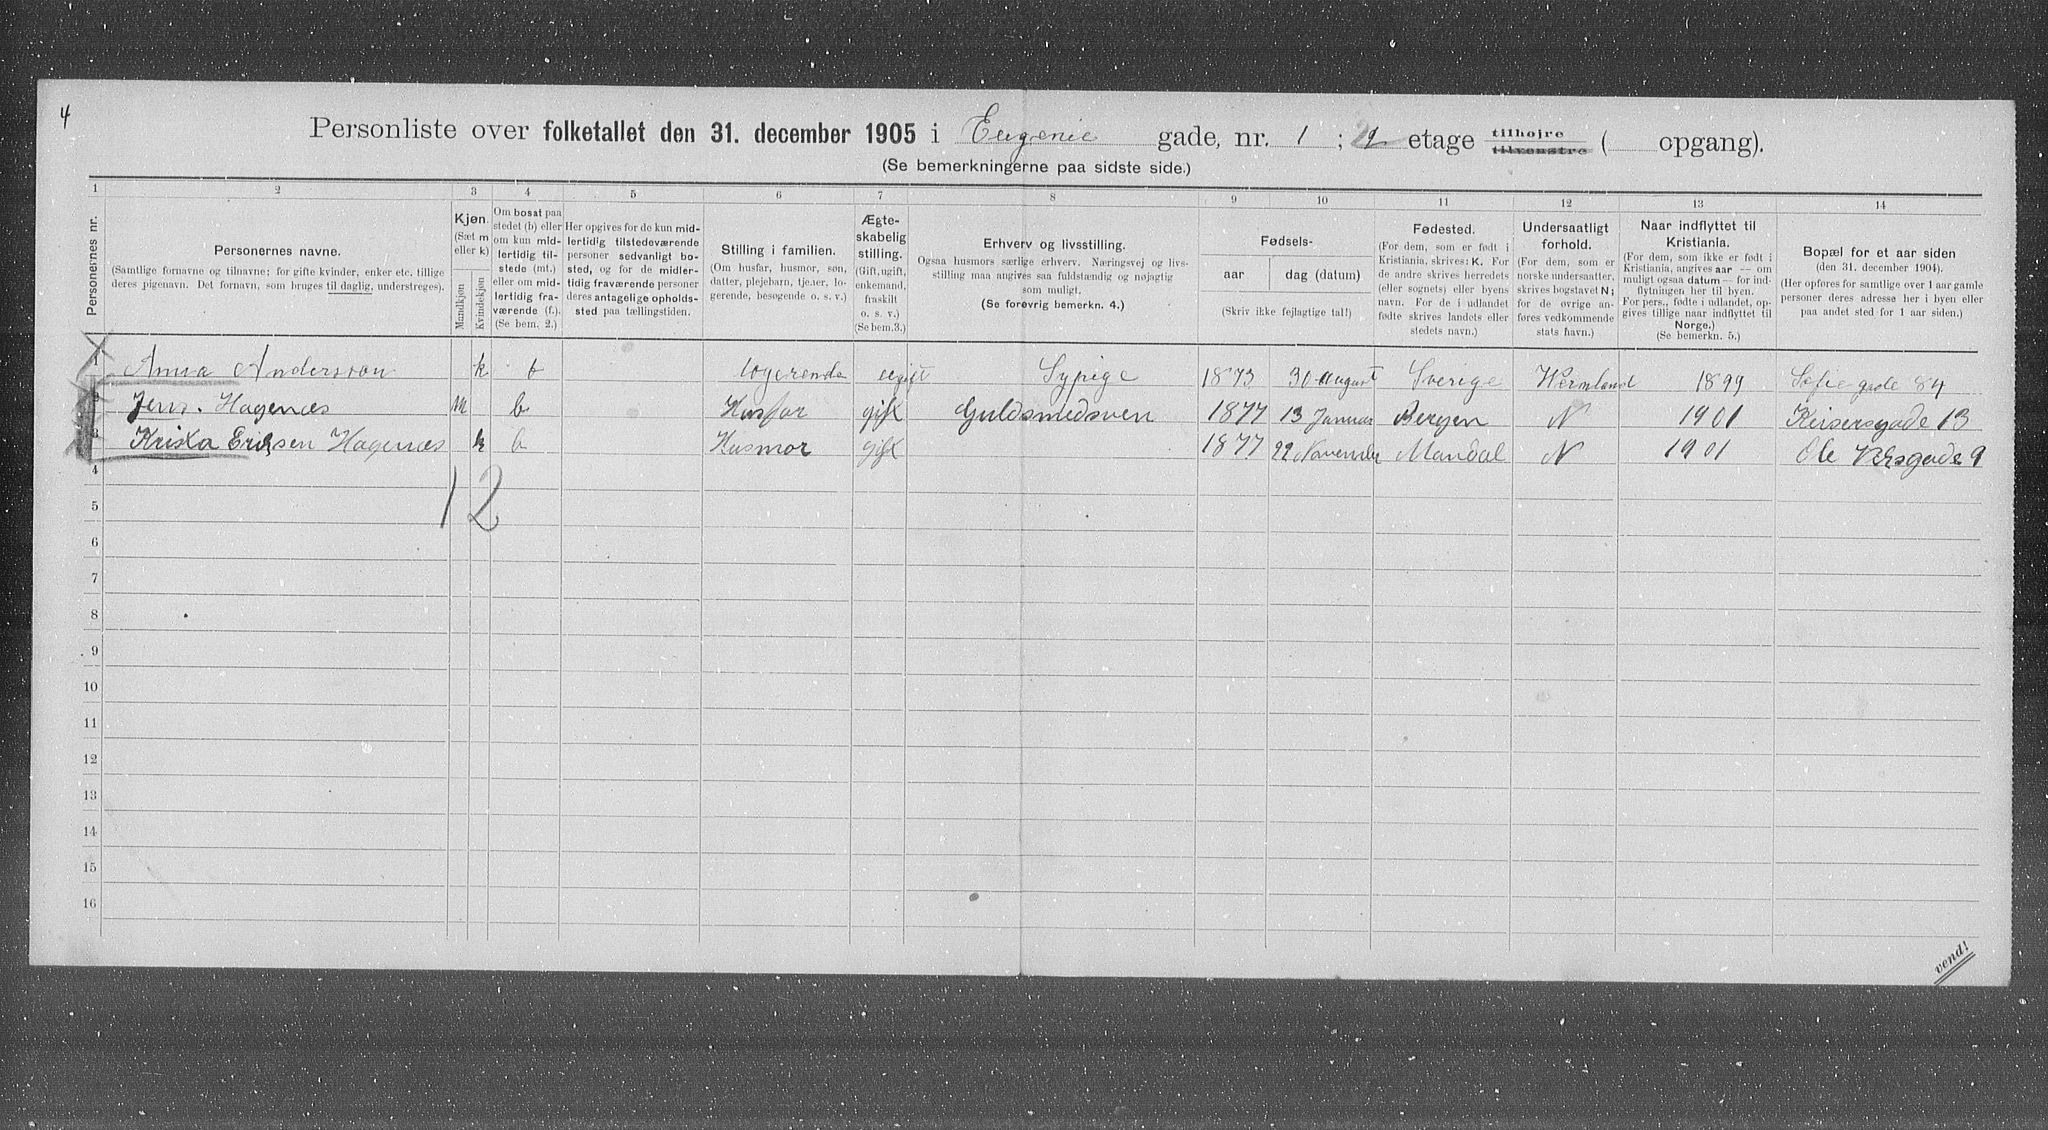 4
Personliste over folketallet den 31. december 1905 i Eugenie gade, nr. 1 ; 2 etage tilhøjre tilvenstre ( opgang).
(Se bemerkningerne paa sidste side.)
1 2 3 4 5 6 7 8 9 10 11 12 13 14
Personernes nr.
Personernes navne.
(Samtlige fornavne og tilnavne; for gifte kvinder, enker etc. tillige
deres pigenavn. Det fornavn, som bruges til daglig, understreges).
Kjøn.
(Sæt m
eller k)
Mandkjøn
Kvindekjøn
Om bosat paa
stedet (b) eller
om kun mid-
lertidig til-
stede (mt.)
eller om mid-
lertidig fra-
værende (f.).
(Se bem. 2.)
Her opgives for de kun mid-
lertidig tilstedeværende
personer sedvanligt bo-
sted, og for de midler-
tidig fraværende personer
deres antagelige opholds-
sted paa tællingstiden.
Stilling i familien.
(Om husfar, husmor, søn,
datter, plejebarn, tjener, lo-
gerende, besøgende o. s. v.)
Ægte-
skabelig
stilling.
(Gift, ugift,
enkemand,
fraskilt
o. s. v.)
(Se bem. 3.)
Erhverv og livsstilling.
Ogsaa husmors særlige erhverv. Næringsvej og livs-
stilling maa angives saa fuldstændig og nøjagtig
som muligt.
(Se forøvrig bemerkn. 4.)
Fødsels-
aar
dag (datum)
(Skriv ikke fejlagtige tal!)
Fødested.
(For dem, som er født i
Kristiania, skrives: K. For
de andre skrives herredets
(eller sognets) eller byens
navn. For de i udlandet
fødte skrives landets eller
stedets navn.)
Undersaatligt
forhold.
(For dem, som er
norske undersaatter,
skrives bogstavet N;
for de øvrige an-
føres vedkommende
stats navn.)
Naar indflyttet til
Kristiania.
(For dem, som ikke er født i
Kristiania, angives aar — om
muligt ogsaa datum — for ind-
flytningen her til byen.
For pers., fødte i udlandet, op-
gives tillige naar indflyttet til
Norge.)
(Se bemerkn. 5.)
Bopæl for et aar siden
(den 31. december 1904).
(Her opføres for samtlige over 1 aar gamle
personer deres adresse her i byen eller
paa andet sted for 1 aar siden.)
1 Anna Anderson k b logerende ugift Sypige 1873 30 August Sverige Wermland 1899 Sofie gade 84
2 Jens. Hagenæs m b Husfar gift Guldsmedsven 1877 13 Januar Bergen N 1901 Keisersgade 13
3 Ericsen Hagenæs k b Husmor gift 1877 22 November Mandal N 1901 Ole 9
4
1 2
5
6
7
8
9
10
11
12
13
14
15
16
vend!